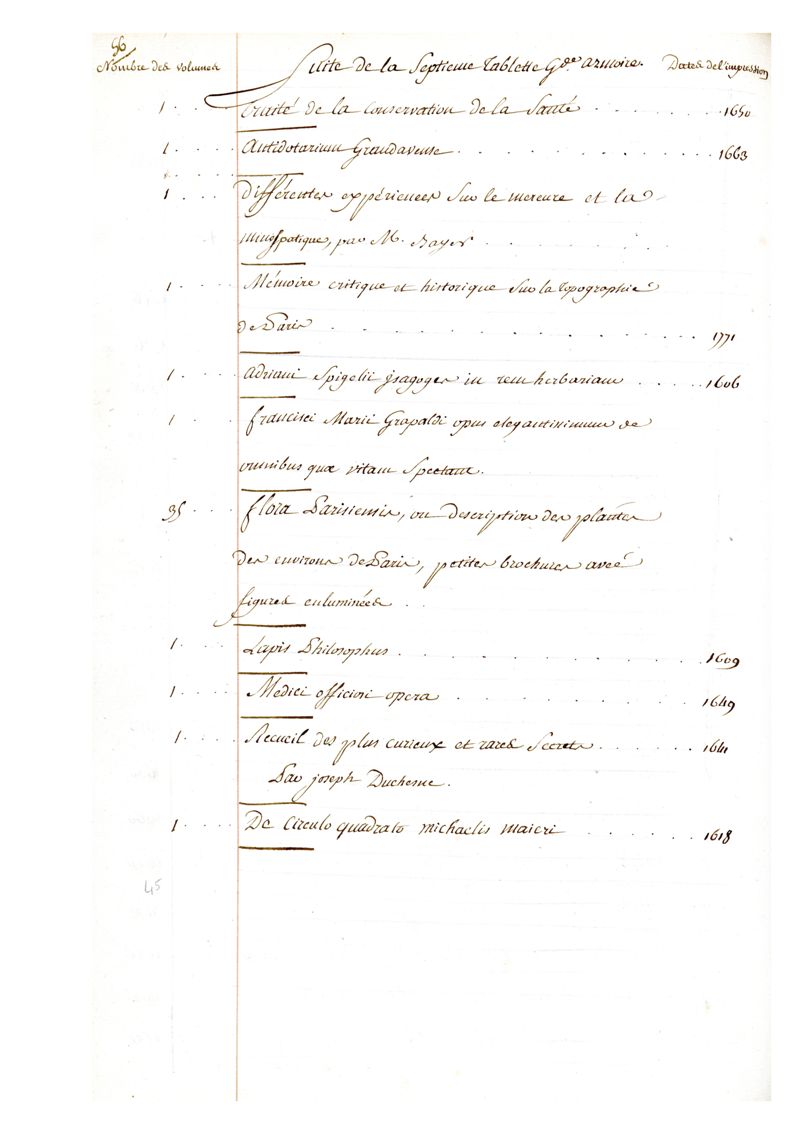 56
Nombre des volumes Suite de la Septieme Tablette Gde. armoire. Dates de l'impression
1 . . . traité de la conservation de la Santé . . . . . . 1650
1 . . . Antidotarium Grandavense . . . . . . . . . . . . 1663
1 . . . Différentes expériences Sur le mercure et la
spatique, par M. Bayer . . . .
1 . . . . Mémoire critique et historique Sur la topographie
de Paris . . . . . . . . . . . . . 1771
1 . . . . Adriani Spigelii jsagoges in rem herbariam . . . . . 1606
1 francisci Marii Grapaldi opus elegantissimum de
omnibus quæ vitam Spectant.
35 . . . flora Parisiensis, ou description des plantes
des environs de Paris, petites brochures avec
figures enluminées . .
1 . . . . Lapis Philosophus . . . . . . . . . . . 1609
1 . . . . Medici officiosi opera . . . . . . . . . . 1649
1 . . . . Recueil des plus curieux et rares Secrets . . . . . . 1641
Par joseph Duchesne.
1 . . . . De Circulo quadrato michaelis maieri . . . . . . . 1618
45